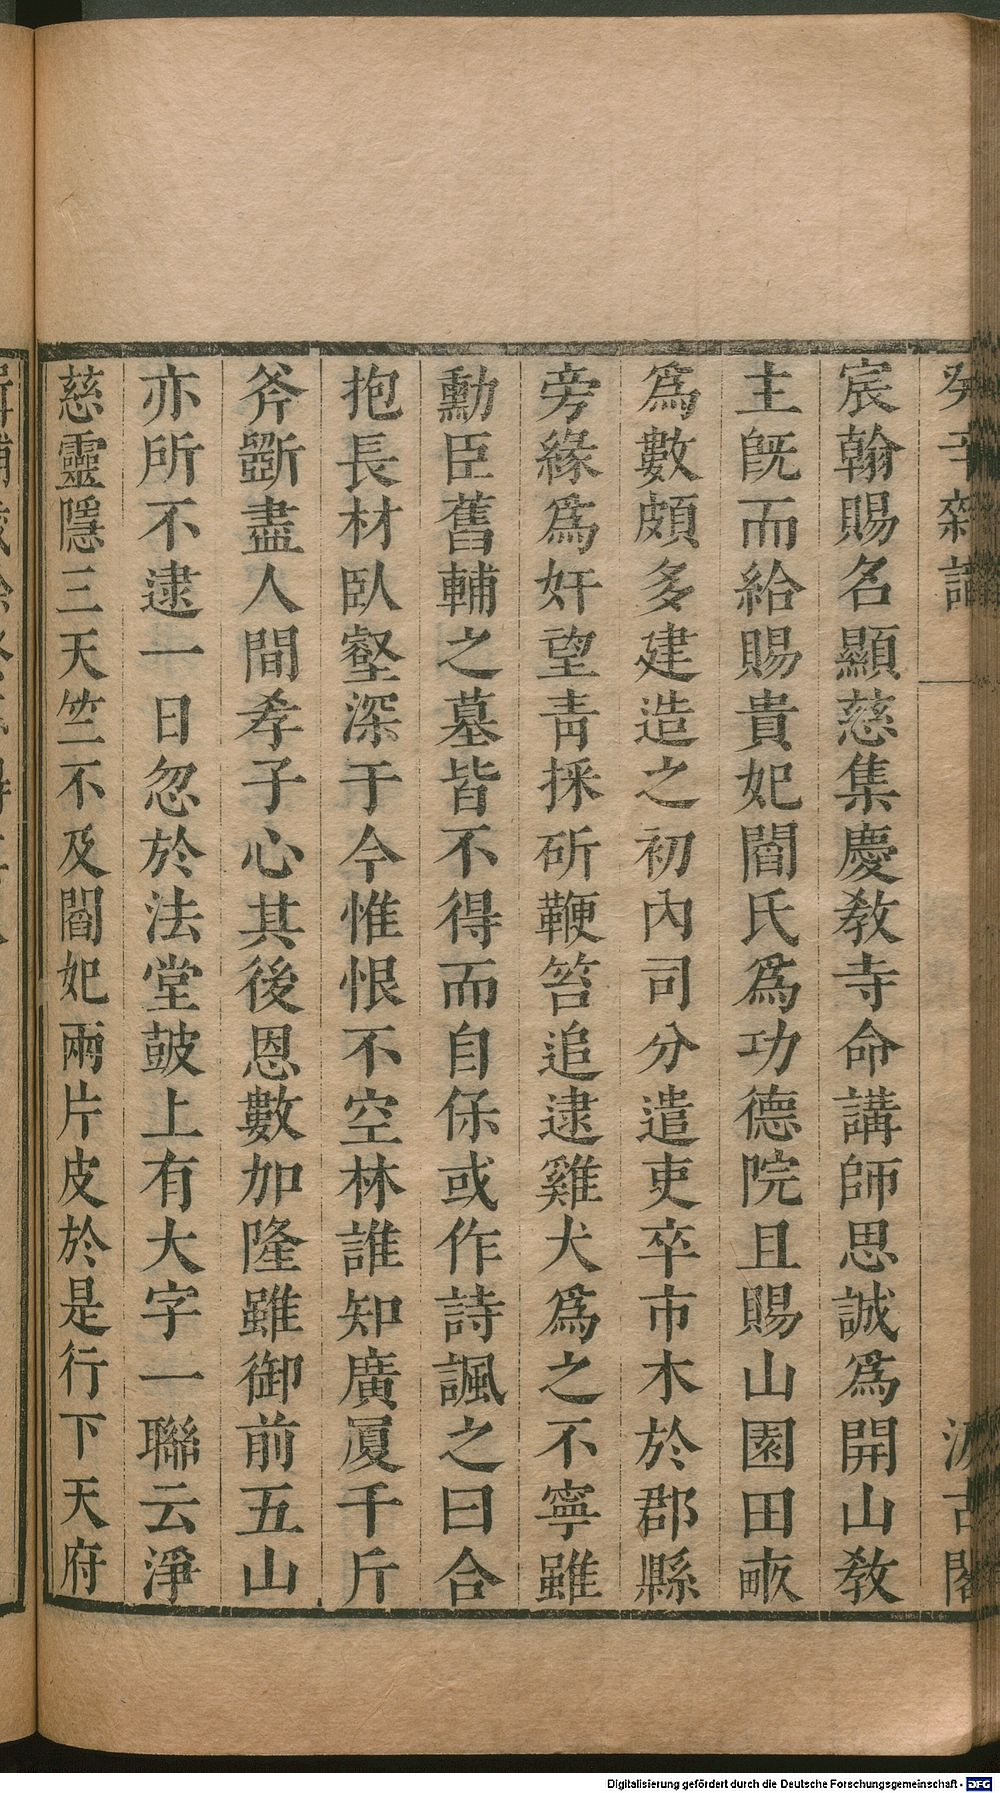 癸辛雜識 汲古閣
宸翰賜名顯慈集慶教寺命講師思誠爲開山教
主旣而給賜貴妃閻氏爲功德院且賜山園田畝
爲數頗多建造之初內司分遣吏卒市木於郡縣
旁緣爲奸望青採斫鞭笞追逮雞犬爲之不寧雖
勳臣舊輔之墓皆不得而自保或作詩諷之曰合
抱長材臥壑深于今惟恨不空林誰知廣厦千斤
斧斵盡人間孝子心其後恩數加隆雖御前五山
亦所不逮一日忽於法堂鼓上有大字一聯云淨
慈靈隱三天竺不及閻妃兩片皮於是行下天府
Digitalisierung gefördert durch die Deutsche Forschungsgemeinschaft - DFG